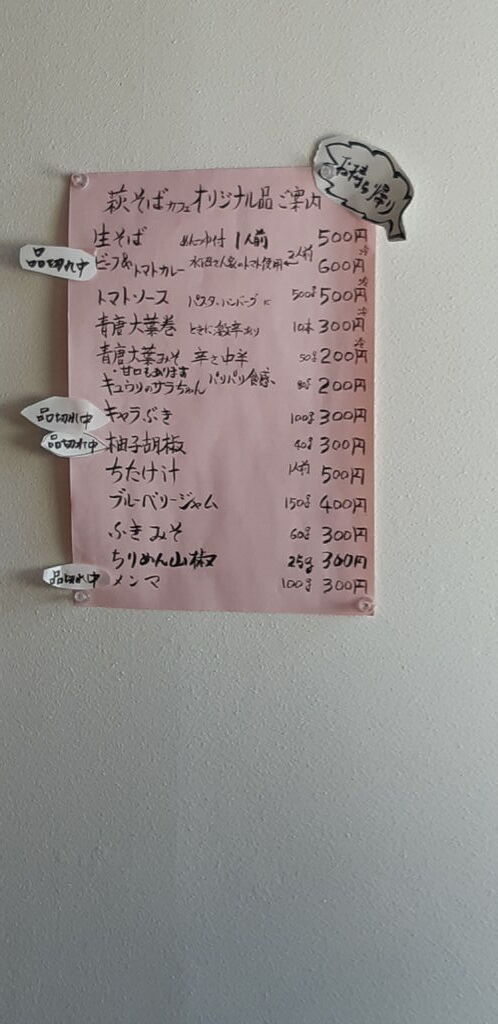 お持ち帰り
萩そばカフェオリジナル品ご案内
生そば めんつゆ付 1人前 500円
品切れ中
ビーフ&トマトカレー 2人前 600円
トマトソース パスタ、ハンバーグに 500g 500円
青唐大葉巻 ときに激辛あり 10本 300円
青唐大葉みそ 辛さ中辛 50g 200円
・甘口もあります
キュウリのサラちゃん パリパリ食感、 80g 200円
品切れ中
キャラぶき 100g 300円
品切れ中
柚子胡椒 40g 300円
ちたけ汁 1人前 500円
ブルーベリージャム 150g 400円
ふきみそ 60g 300円
ちりめん山椒 25g 300円
品切れ中
メンマ 100g 300円